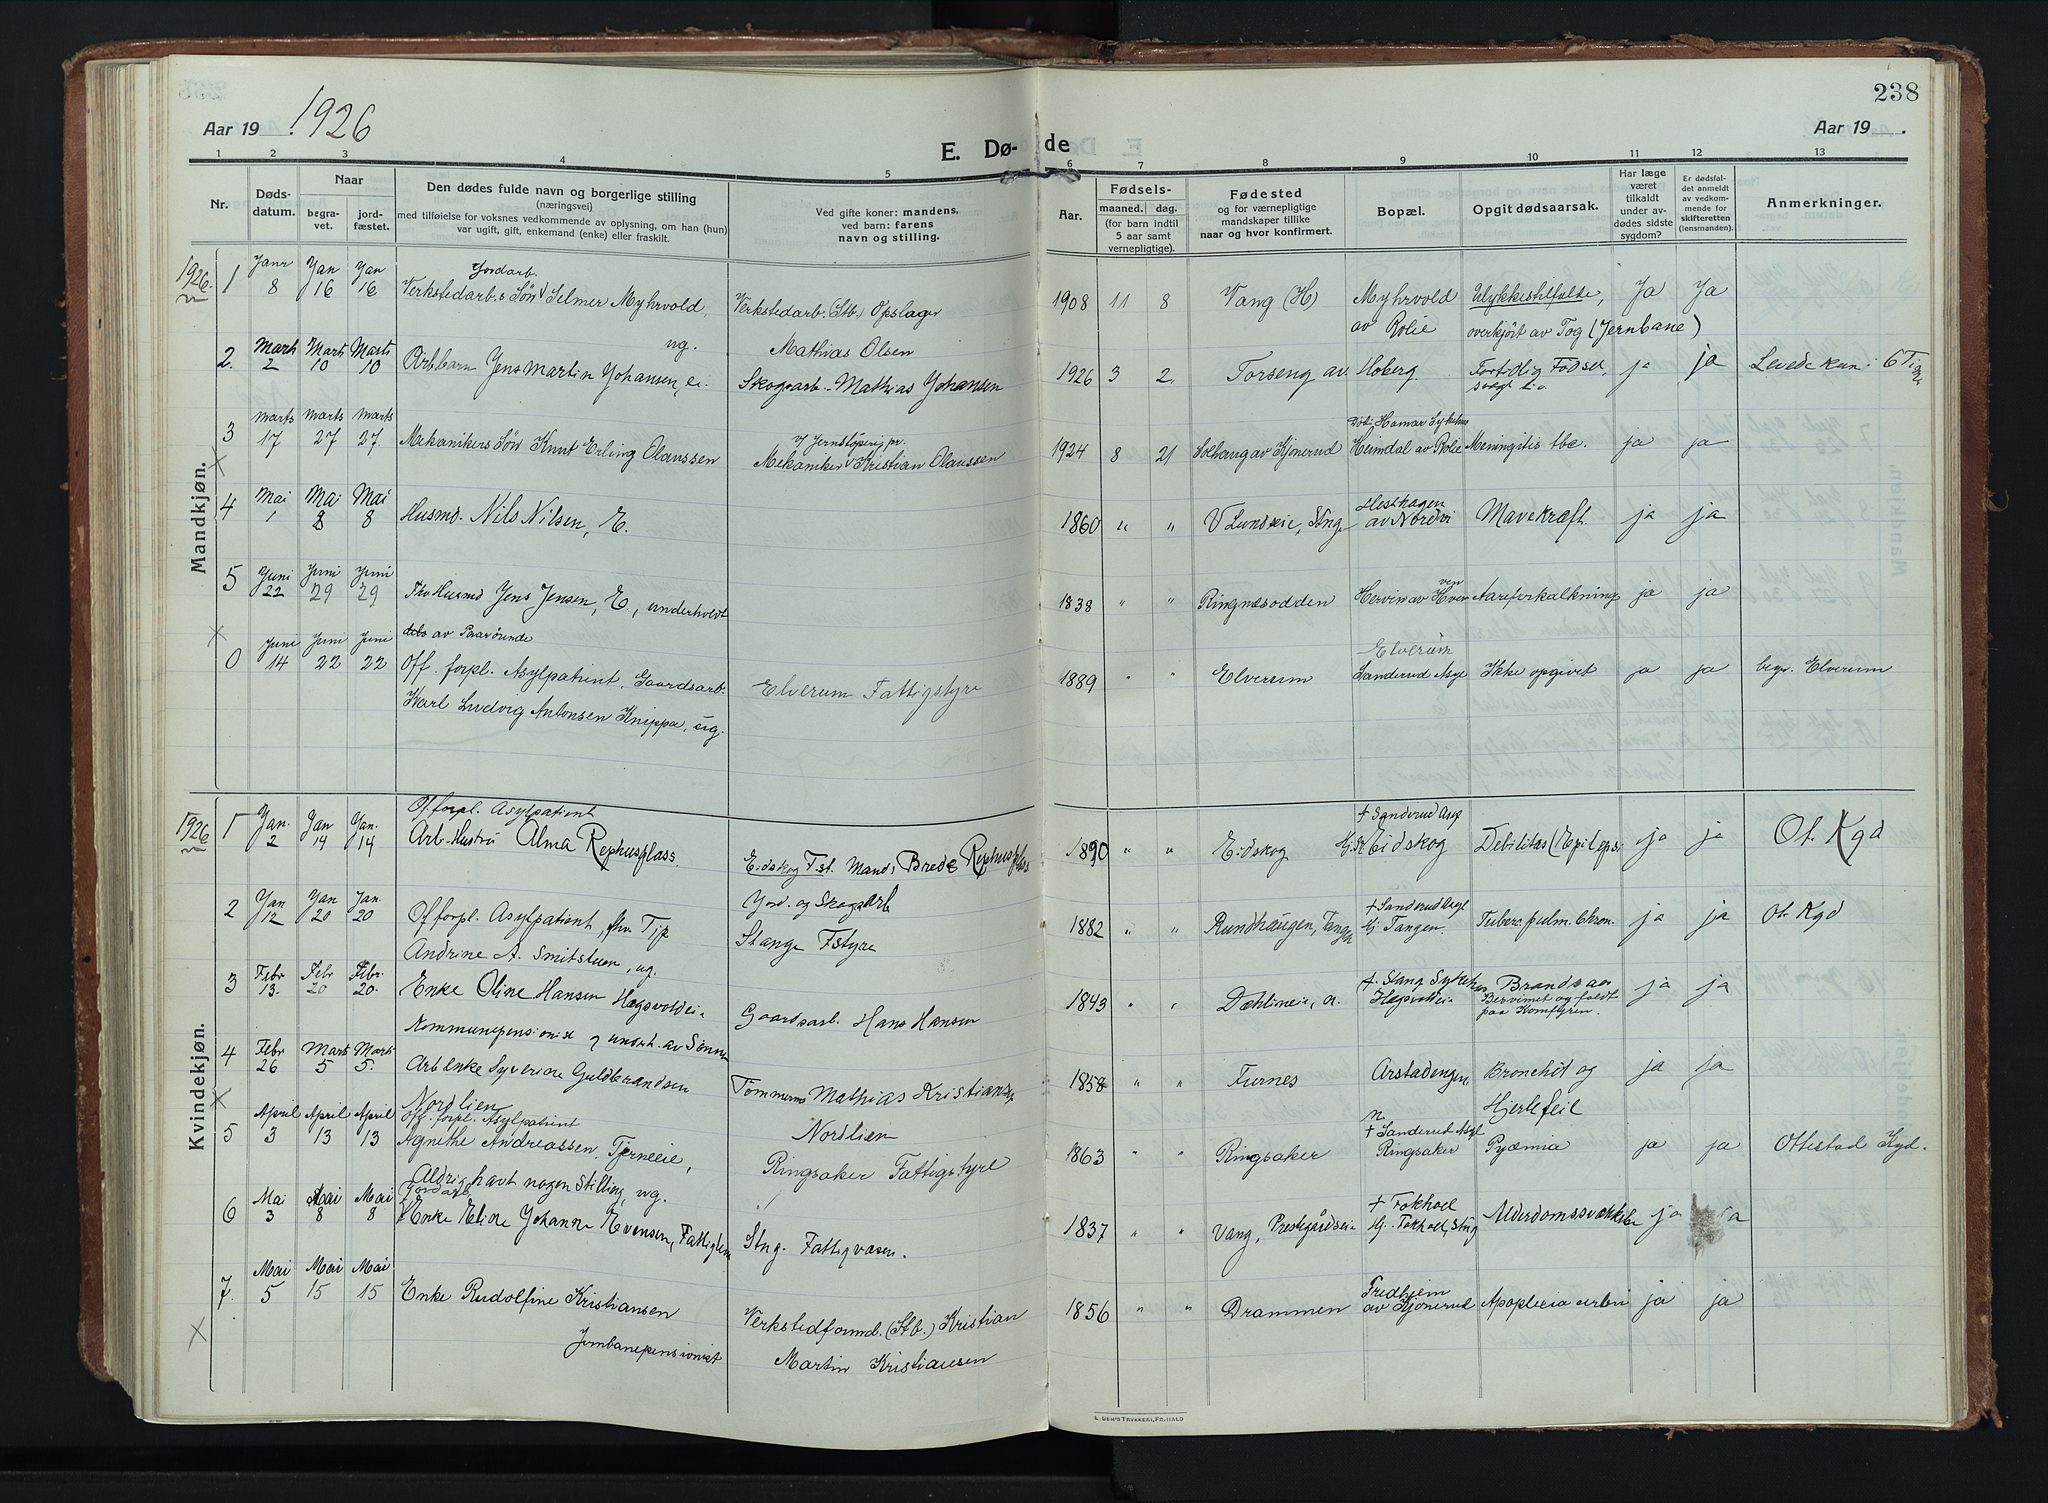 238
Aar 19 1926
Aar 19 .
E. Dø- de
1 2 3 4 5 6 7 8 9 10 11 12 13
Nr.
Døds-
datum.
Naar
begra-
vet.
jord-
fæstet.
Den dødes fulde navn og borgerlige stilling
(næringsvei)
med tilføielse for voksnes vedkommende av oplysning, om han (hun)
var ugift, gift, enkemand (enke) eller fraskilt.
Ved gifte koner: mandens,
ved barn: farens
navn og stilling.
Aar.
Fødsels-
maaned. dag.
(for barn indtil
5 aar samt
vernepligtige).
Fødested
og for værnepligtige
mandskaper tillike
naar og hvor konfirmert.
Bopæl.
Opgit dødsaarsak.
Har læge
været
tilkaldt
under av-
dødes sidste
sygdom?
Er dødsfal-
det anmeldt
av vedkom-
mende for
skifteretten
(lensmanden).
Anmerkninger.
Mandkjøn.
1926. 1 Janr 8 Jan 16 Jan 16
Jordarb.
Verkstedarb.s Søn Selmer Myhrvold,
ug.
Verkstedarb. (Stb.) Opslager
Mathias Olsen
1908 11 8 Vang (H) Myhrvold
av Rolie
Ulykkestilfælde,
overkjört av Tog (Jernbane)
Ja Ja
2. Marts 2 Marts 10 Marts 10
Arb.barn Jens Martin Johansen,
Skogsarb. Mathias Johansen
1926 3 2. Torseng av Hoberg. Fødsel,
svagt
ja ja Levde kun 6 Tim
3 Marts 17 Marts 27 Marts 27
Mekanikers Søn Knut Erling Olaussen
Mekaniker Kristian Olaussen
1924 8 21 Solhaug av Kjonerud
Död i Hamar Sykehus
Heimdal av Rolie Meningitis tbc. ja ja
4 Mai 1 Mai 8 Mai 8
Husmd. Nils Nilsen, E.
1860 " " Lundseie, Stnge
Hesthagen
av Nordvi
Mavekræft. ja ja
5 Juni 22 Juni 29 Juni 29
Fhv Husmd Jens Jensen, E., underholdt
av Paarörende
1838 " " Ringnæsodden Hervin av Hverven Aareforkalkning ja ja
0 Juni 14 Juni 22 Juni 22
Off. forpl. Asylpatient, Gaardsarb.
Karl Ludvig Antonsen Knippa, ug.
Elverum Fattigstyre
1889 " " Elverum
Elverum
Sanderud Asyl
Ikke opgivet ja ja begr. Elverum
Kvindekjøn.
1926 1 Jan. 2 Jan 14 Jan. 14
Of. forpl. Asylpatient
Arb. Hustru Alma Rephusplass.
Eidskog Fst. Mand: Brede Rephusplass
Jord. og Skogsarb
1890 " " Eidskog
+ Sanderud Asyl
Eidskog
Debilitas (Epilepsi ja ja Ot. Kgd
2 Jan 12 Jan 20 Jan. 20
Of forpl. Asylpatient, fhv Tjp
Andrine A. Smitstuen, ug.
Stange Fstyre
1882 " " Rundhaugen, Tangen
+ Sanderud Asyl
Hj. Tangen.
Tuberc. pulm. Chron. ja ja Ot. Kgd
3 Febr 13. Febr 20 Febr. 20.
Enke Oline Hansen Hægsvoldeie
Kommunepensionist og underh. av Sønnen
Gaardsarb. Hans Hansen
1843 " " Dæhlineie,
+ Stang Sykehus
Brandsaar
Besvimet og faldt
paa Komfyren.
ja ja
4 Febr 26 Marts 5 Marts 5.
Arb Enke Syverine Guldbrandsen
Nordlien
Tømmermd Mathias Kristiansen
Nordlien
1858 " " Furnes Arstadengen Bronchit og
Hjertefeil
ja ja
5 April 3 April 13 April 13
Off. forpl. Asylpatient
Agnethe Andreassen, Tjerneeie,
Aldrig havt nogen Stilling, ug.
Ringsaker Fattigstyre
1863 " " Ringsaker
+ Sanderud Asyl
Ringsaker
Pyæmia ja ja Ottestad Kgd.
6 Mai 3 Mai 8 Mai 8
Jordarb.
Enke Eline Johanne Evensen, Fattiglem
Stng. Fattigvæsen.
1837 " " Vang, Prestegårdseie
+ Fokhoel
Hj. Fokhoel, Stng
Alderdomssvækkelse ja ja
7. Mai 5 Mai 15 Mai 15
Enke Rudolfine Kristiansen
Jernbanepensionist
Verkstedformd. (Stb.) Kristian
Martin Kristiansen
1856 " " Drammen
Fredhjem
av Kjonerud
Apoplexia cerebri ja ja
E. SEM'S TRYKKERI, FR.HALD